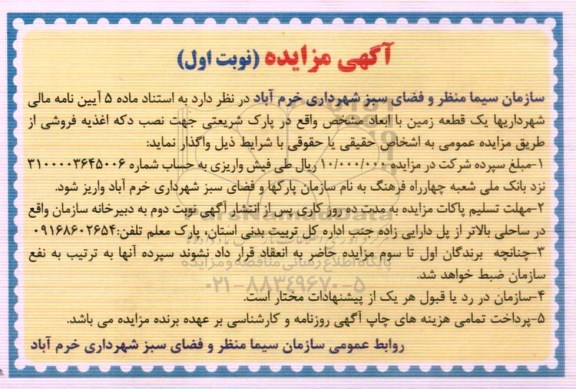 آگهی مزایده (نوبت اول)
سازمان سیما منظر و فضای سبز شهرداری خرم آباد در نظر دارد به استناد ماده ۵ آیین نامه مالی
شهرداریها یک قطعه زمین با ابعاد مشخص واقع در پارک شریعتی جهت نصب دکه اغذیه فروشی از
طریق مزایده عمومی به اشخاص حقیقی یا حقوقی با شرایط ذیل واگذار نماید:
۱-مبلغ سپرده شرکت در مزایده ۱۰/۰۰۰/۰۰۰ ریال طی فیش واریزی به حساب شماره ۳۱۰۰۰۰۳۶۴۵۰۰۶
نزد بانک ملی شعبه چهارراه فرهنگ به نام سازمان پارکها و فضای سبز شهرداری خرم آباد واریز شود.
۲-مهلت تسلیم پاکات مزایده به مدت ده روز کاری پس از انتشار آگهی نوبت دوم به دبیرخانه سازمان واقع
در ساحلی بالاتر از پل دارایی زاده جنب اداره کل تربیت بدنی استان، پارک معلم تلفن:۰۹۱۶۸۶۰۲۶۵۴
۳-چنانچه برندگان اول تا سوم مزایده حاضر به انعقاد قرار داد نشوند سپرده آنها به ترتیب به نفع
سازمان ضبط خواهد شد.
پایگاه اطلاع رسانی مناقصه و مزایده
۰۲۱-۸۸۳۴۹۶۷۰-۵
۴-سازمان در رد یا قبول هر یک از پیشنهادات مختار است.
۵-پرداخت تمامی هزینه های چاپ آگهی روزنامه و کارشناسی بر عهده برنده مزایده می باشد.
روابط عمومی سازمان سیما منظر و فضای سبز شهرداری خرم آباد